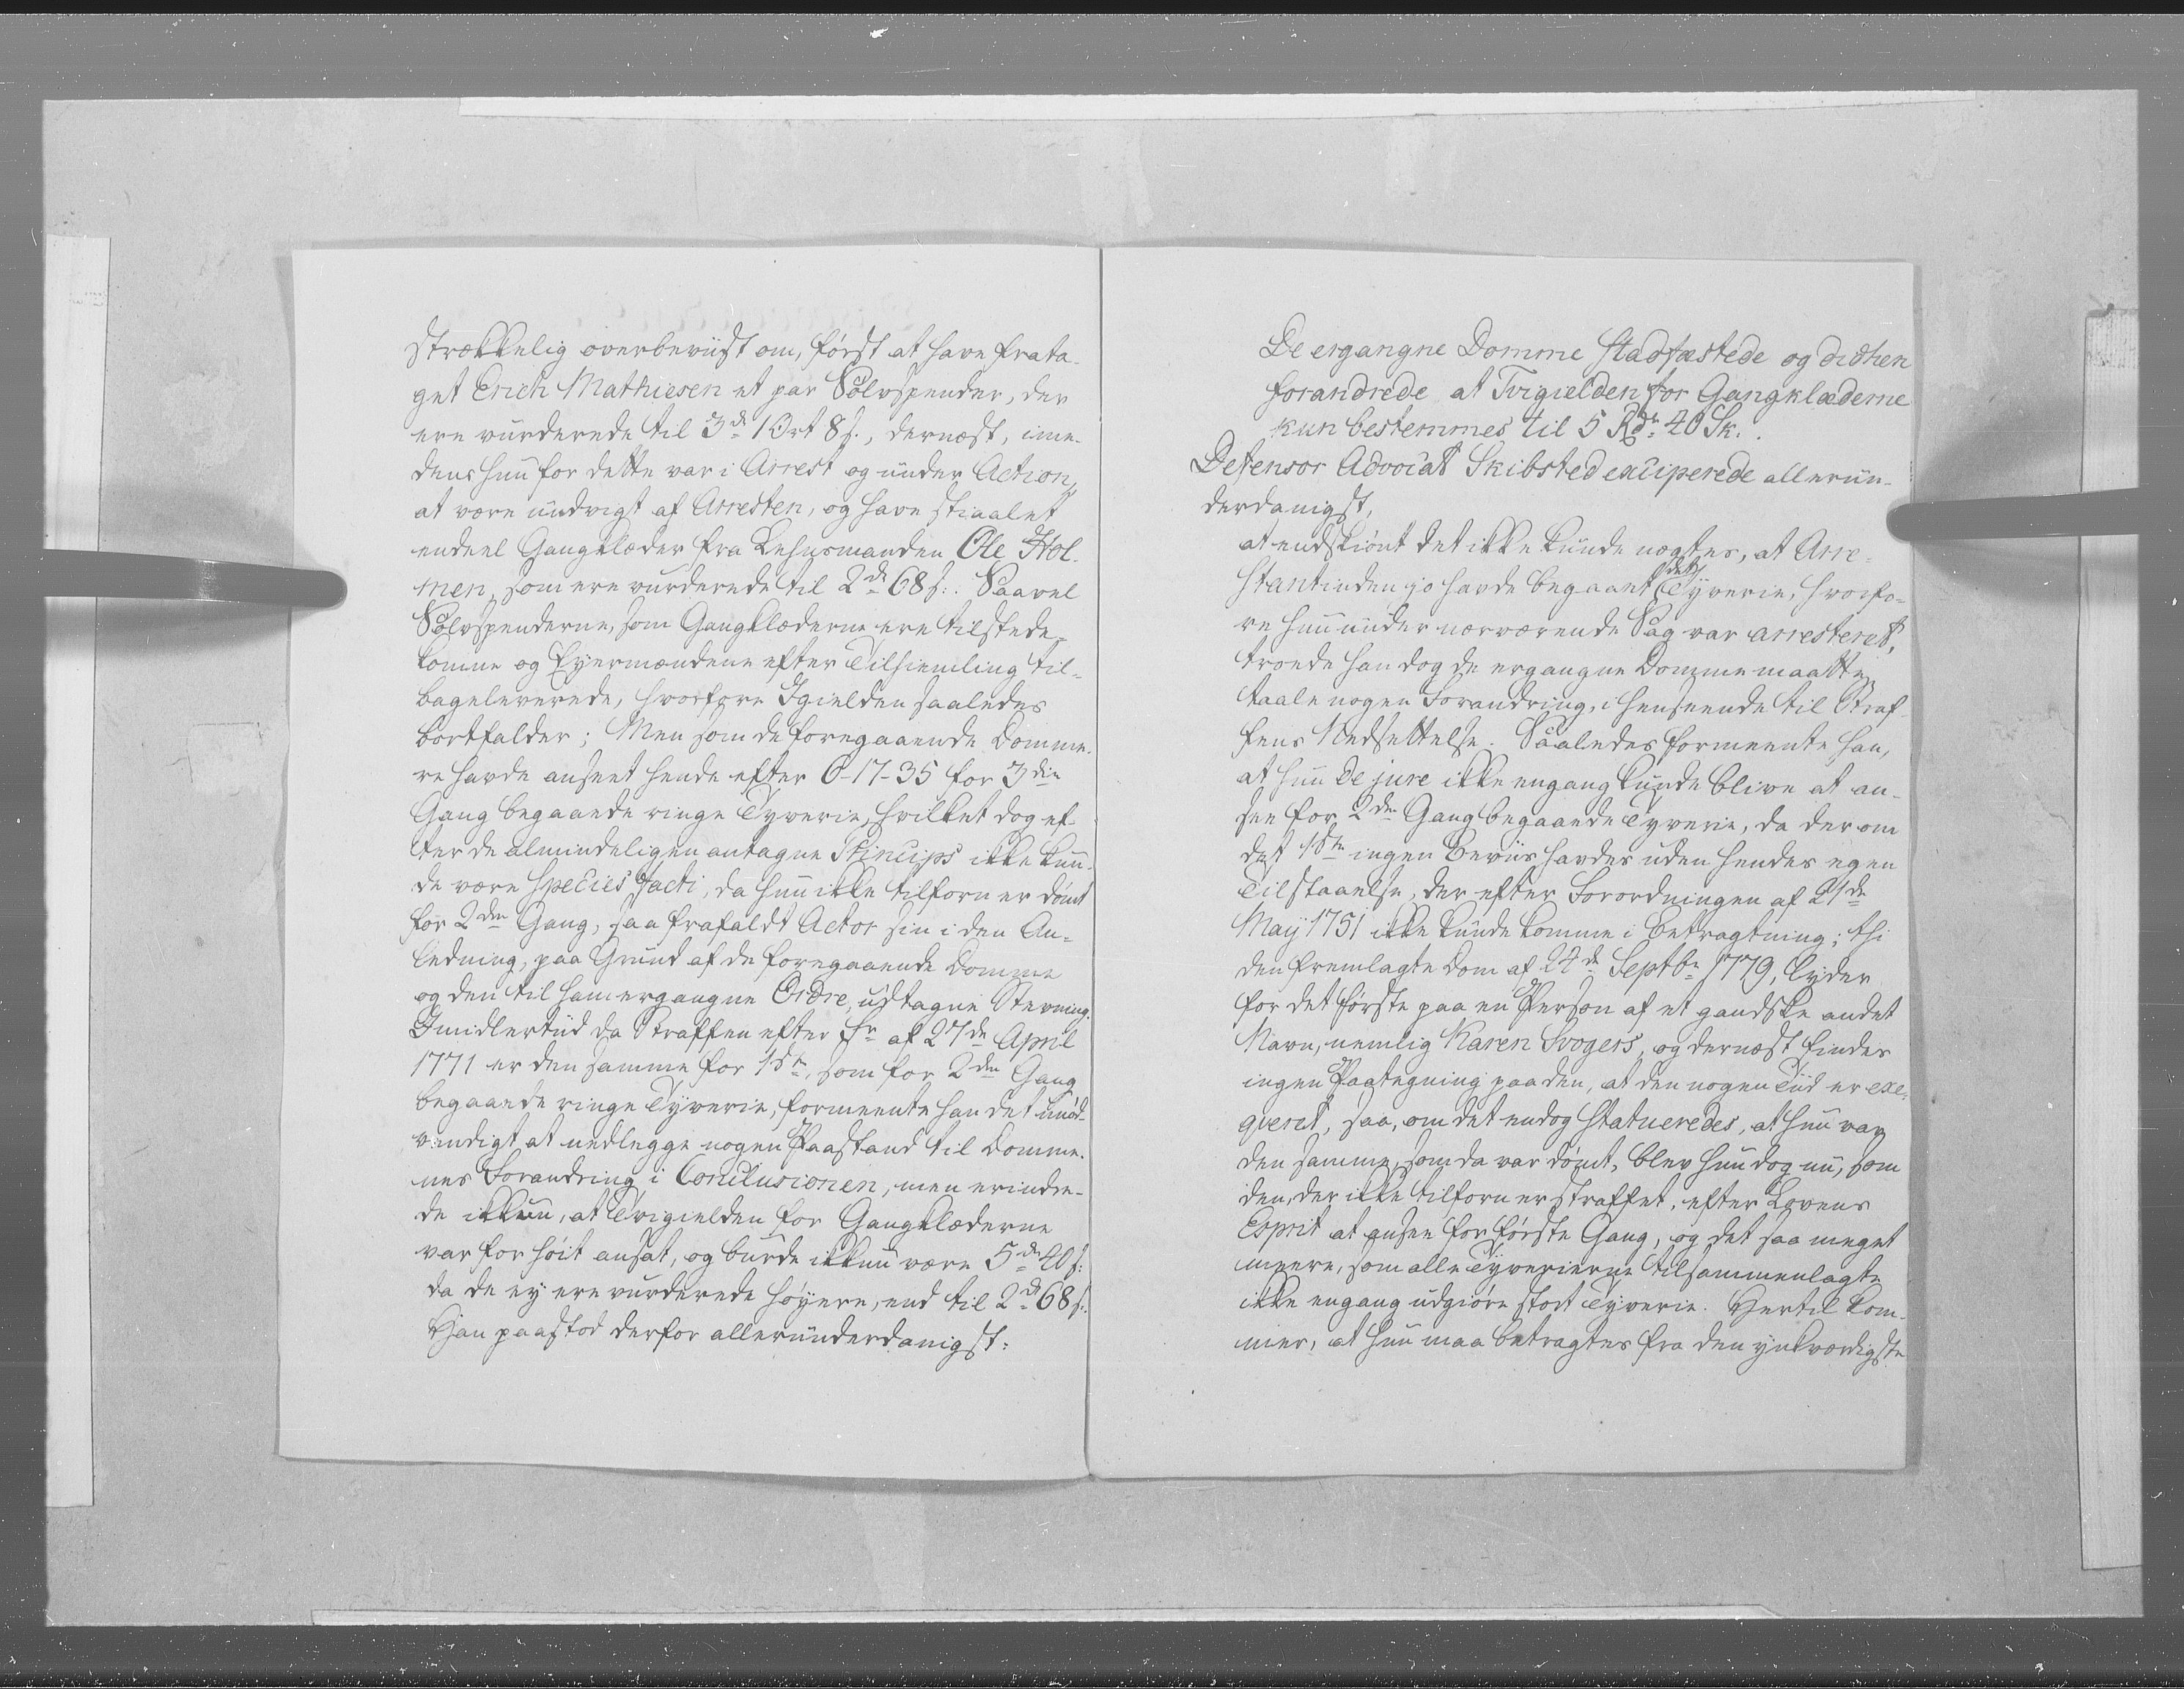 strækkelig overbeviist om, først at have frata-
get Erich Mathiesen et par Sølvspender, der
ere vurderede til 3 d 1 Ort 8 s., dernæst, ime-
dens hun for dette var i Arrest og under Action,
at være undvigt af Arresten, og have stiaalet
endeel Gangklæder fra Lehnsmanden Ole Hol-
men, som ere vurderede til 2 d 68 s:. Saavel
Sølvspenderne, som Gangklæderne ere tilstede-
komne og Eyermændene efter Tilhiemling til-
bageleverede, hvorfore Igielden saaledes
bortfalder; Men som de foregaaende Domme-
re havde anseet hende efter 6-17-35 for 3die
Gang begaaende ringe Tyverie, hvilket dog ef-
ter de almindeligen antagne Princips ikke kun-
de være Species facti, da hun ikke tilforn er dømt
for 2den Gang, saa frafaldt Actor sin i den An-
ledning, paa Grund af de foregaaende Domme
og den til ham ergangne Ordre, udtagne Stevning.
Imidlertiid da Straffen efter Fr af 27de April
1771 er den samme for 1ste, som for 2den Gang
begaaende ringe Tyverie, formeente han det unød-
vendigt at nedlegge nogen Paastand til Domme-
nes Forandring i Conclusionen, men erindre-
de ikkun, at Tvigielden for Gangklæderne
var for høit ansat, og burde ikkun være 5 d 40 s:
da de ey ere vurderede høyere, end til 2 d 68 s:
Han paastod derfor allerunderdanigst:
De ergangne Domme stadfæstede og didhen
forandrede at Tvigielden for Gangklæderne
kun bestemmes til 5 Rdr 40 Sk.
Defensor Advocat Skibsted exciperede allerun-
derdanigst,
at endskiønt det ikke kunde nægtes, at Arre-
stantinden jo havde begaaet det Tyverie, hvorfo-
re hun under nærværende Sag var arresteret,
troede han dog de ergangne Domme maatte
taale nogen Forandring, i henseende til Straf-
fens Nedsettelse. Saaledes formeente han,
at hun de jure ikke engang kunde blive at an-
see for 2den Gang begaaende Tyverie, da der om
det 1ste ingen Beviis havdes uden hendes egen
Tilstaaelse, der efter Forordningen af 21de
May 1751 ikke kunde komme i Betragtning; thi
den fremlagte Dom af 24de Septbr 1779, lyder
for det første paa en Person af et gandske andet
Navn, nemlig Karen Svogers, og dernæst findes
ingen Paategning paa den, at den nogen Tiid er exe-
qveret, saa, om det endog statueredes, at hun var
den samme, som da var dømt, blev hun dog nu, som
den, der ikke tilforn er straffet, efter Lovens
Esprit at ansee for første Gang, og det saa meget
meere, som alle Tyverierne tilsammenlagte
ikke engang udgiøre stort Tyverie. Hertil kom-
mer, at hun maa betragtes fra den ynkværdigste